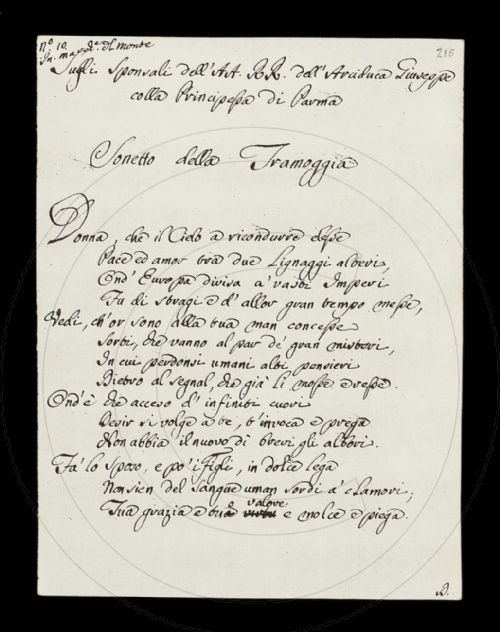 N.º 10.
216
Sugli Sponsali dell'AA. RR. dell'Arciduca Giuseppe
colla Principessa di Parma
Sonetto della Tramoggia
Donna, che il Cielo a ricondurre elesse
Pace ed amor tra due Lignaggi alteri,
Ond' Europa divisa a' vasti Imperi
Fu di stragi e d' allor gran tempo messe,
Vedi, ch'or sono alla tua man concesse
Sorti, che vanno al par de' gran misteri,
In cui perdonsi umani alti pensieri
Dietro al segnal, che già li mosse e resse.
Ond' è che acceso d' infiniti cuori
Desir si volge a te, t' invoca e prega
Non abbia il nuovo di brevi gli albori.
Fa' lo sposo, e po' i Figli, in dolce lega
Non sien del sangue uman sordi a' clamori;
valore
Tua grazia e tuo virtu e molce e piega.